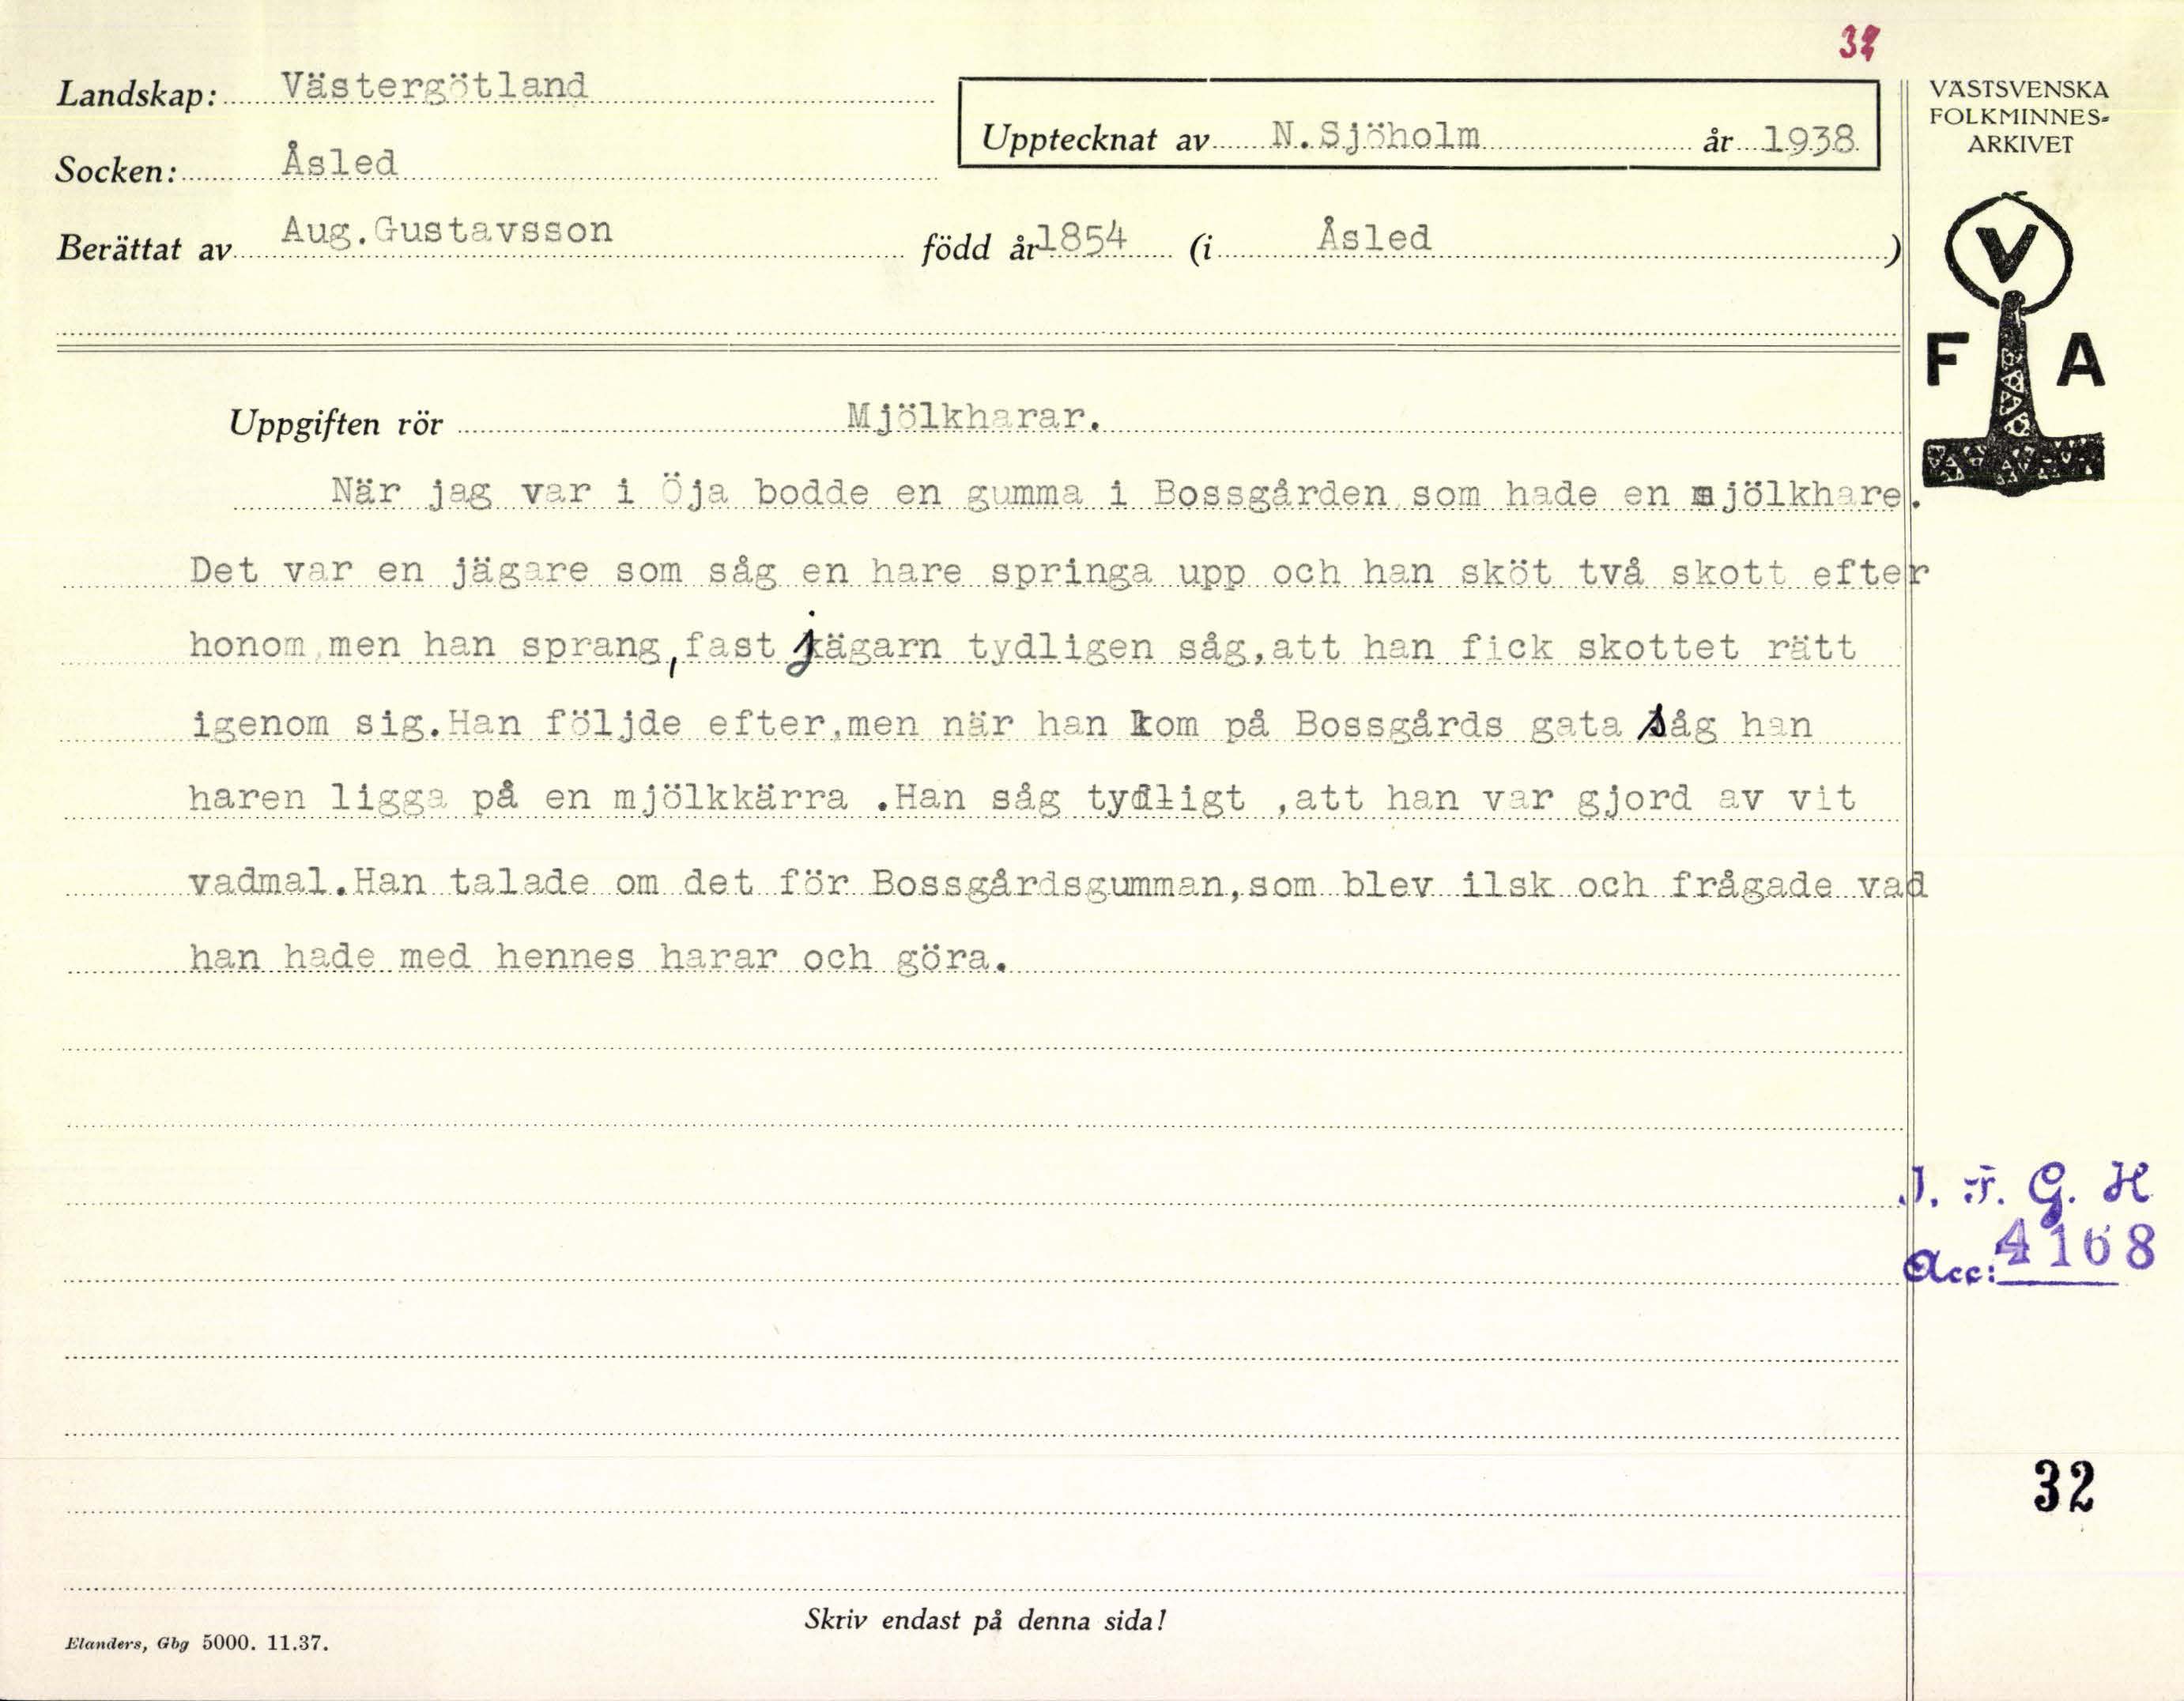 32
Landskap: Västergötland
Upptecknat av N.Sjöholm år 1938
VÄSTSVENSKA
FOLKMINNES-
ARKIVET
Socken: Åsled
Berättat av Aug.Gustavsson född år 1854 (i Åsled )
V
F A
Uppgiften rör Mjölkharar.
När jag var i Öja bodde en gumma i Bossgården som hade en mjölkhare.
Det var en jägare som såg en hare springa upp och han sköt två skott efter
honom,men han sprang,fast jägarn tydligen såg,att han fick skottet rätt
igenom sig.Han följde efter,men när han kom på Bossgårds gata såg han
haren ligga på en mjölkkärra .Han såg tydligt ,att han var gjord av vit
vadmal.Han talade om det för Bossgårdsgumman,som blev ilsk och frågade vad
han hade med hennes harar och göra.
I. F. G. H
Acc: 4168
32
Skriv endast på denna sida!
Elanders, Gbg 5000. 11.37.